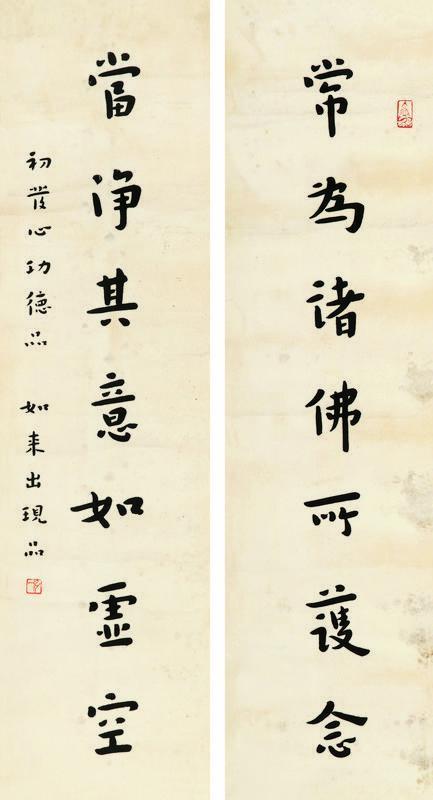 常為諸佛所護念
當淨其意如虛空
初發心功德品 如來出現品